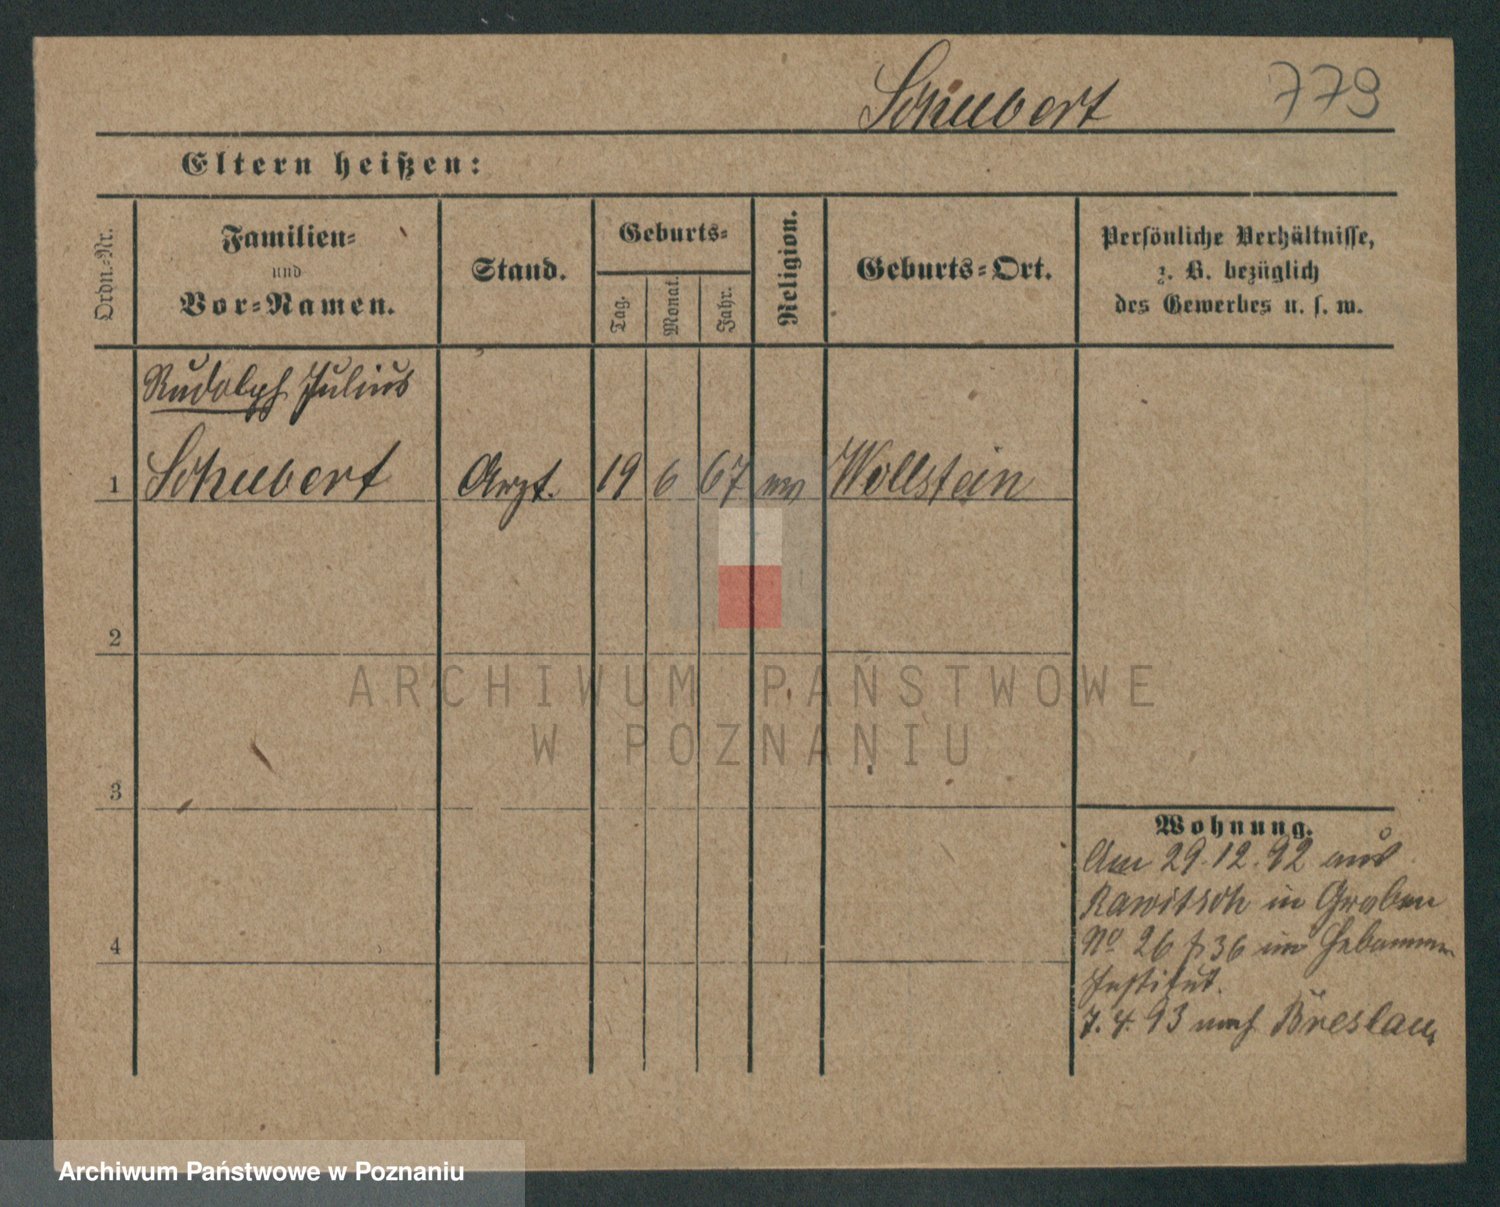 Schubert 779
Eltern heißen:
Ordn.-Nr.
Familien-
und
Vor-Namen.
Stand.
Geburts-
Tag.
Monat.
Jahr.
Religion.
Geburts-Ort.
Persönliche Verhältnisse,
z. B. bezüglich
des Gewerbes u. s. w.
Rudolph Julius
1 Schubert Arzt. 19 6 67 ev Wollstein
2
3
4
ARCHIWUM PAŃSTWOWE
W POZNANIU
Wohnung.
Am 29.12.92 aus
Rawitsch in Graben
No 26 36 im Hebammen
Institut.
7.4.93 nach Breslau
Archiwum Państwowe w Poznaniu